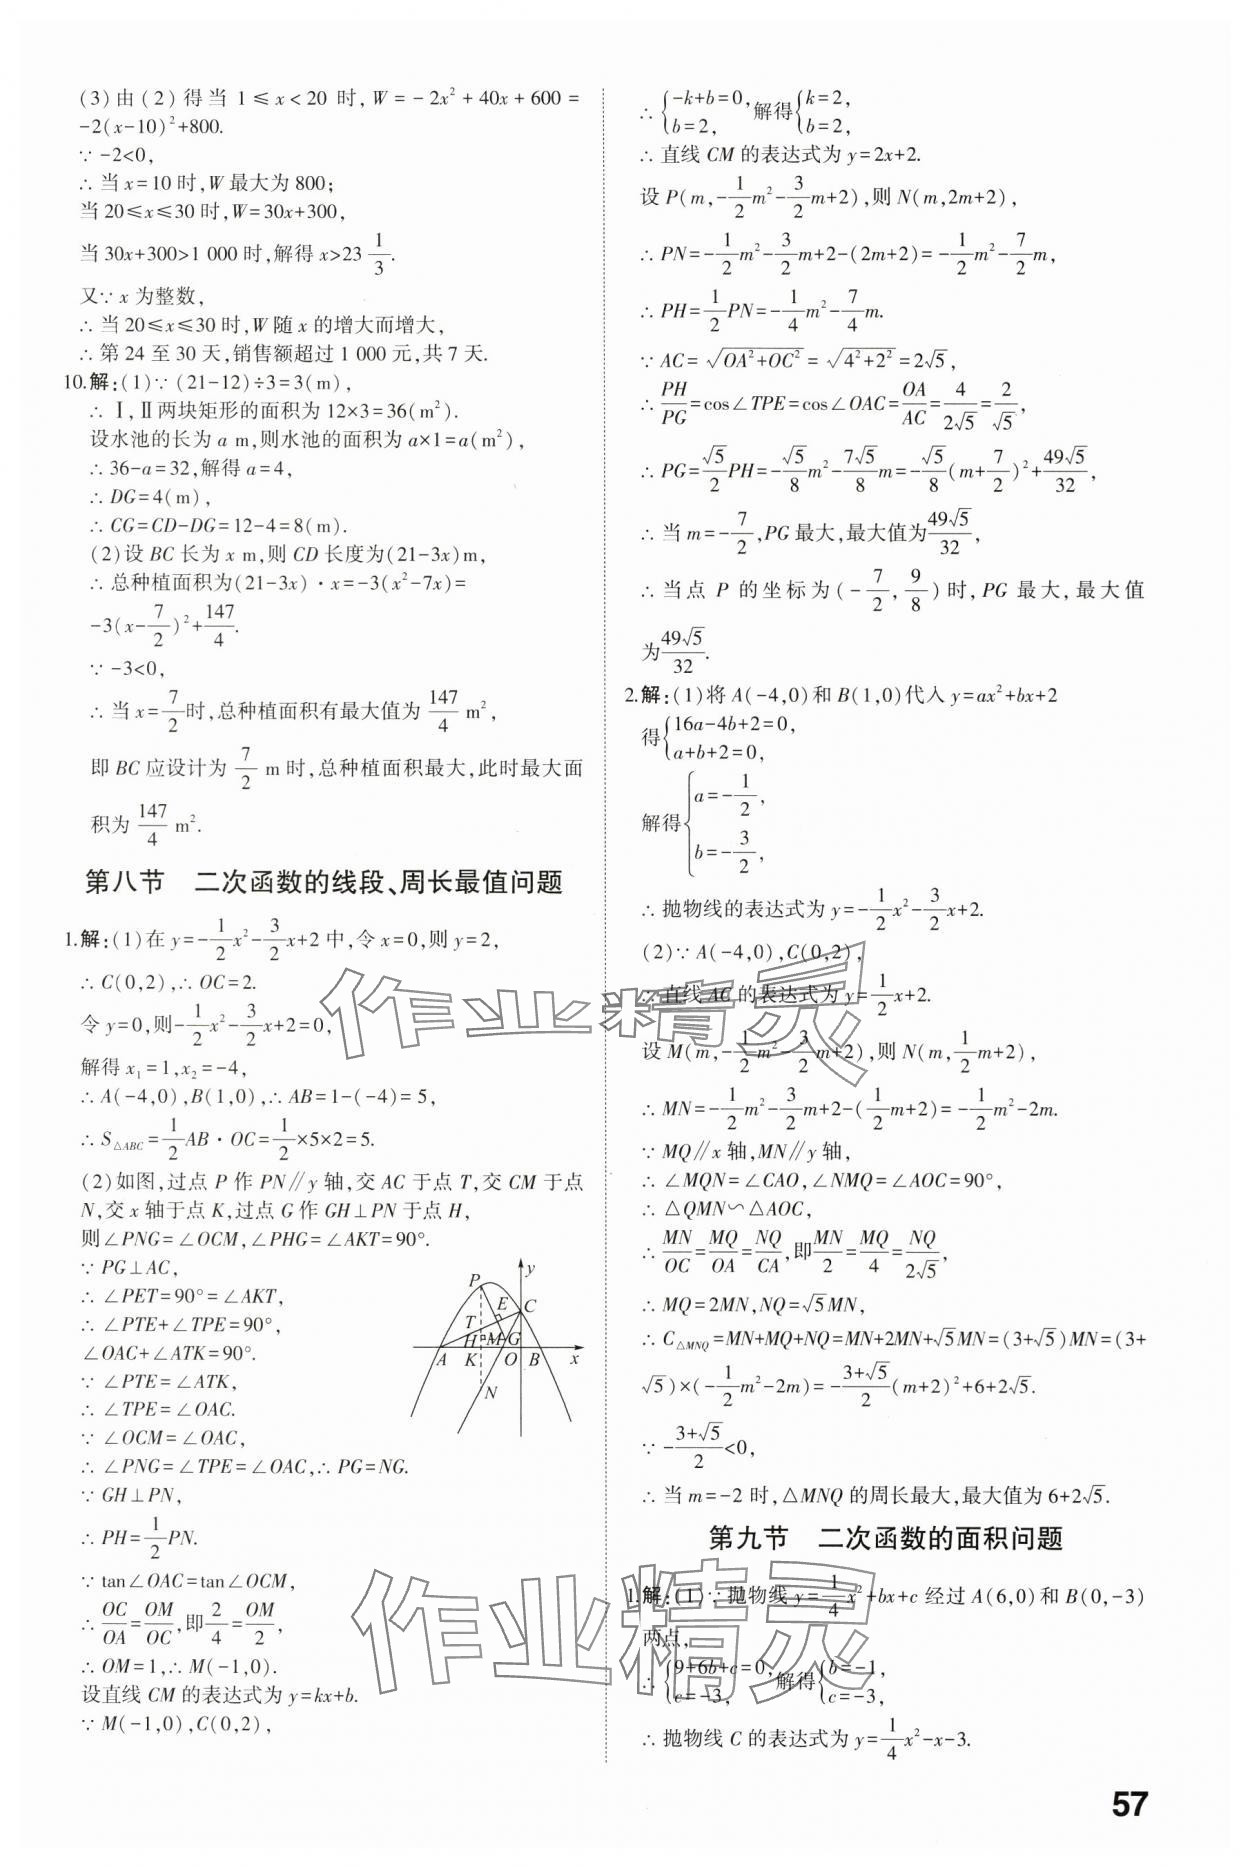 (3)由(2)得当 1≤x<20 时,W=-2x²+40x+600=
-2(x-10)²+800.
∵ -2<0,
∴ 当 x=10 时,W 最大为 800;
当 20≤x≤30 时,W=30x+300,
当 30x+300>1 000 时,解得 x>23 1/3.
又∵ x 为整数,
∴ 当 20≤x≤30 时,W 随 x 的增大而增大,
∴ 第 24 至 30 天,销售额超过 1 000 元,共 7 天.
10.解:(1)∵ (21-12)÷3=3(m),
∴ Ⅰ,Ⅱ两块矩形的面积为 12×3=36(m²).
设水池的长为 a m,则水池的面积为 a×1=a(m²),
∴ 36-a=32,解得 a=4,
∴ DG=4(m),
∴ CG=CD-DG=12-4=8(m).
(2)设 BC 长为 x m,则 CD 长度为(21-3x)m,
∴ 总种植面积为(21-3x)·x=-3(x²-7x)=
-3(x-7/2)²+147/4.
∵ -3<0,
∴ 当 x=7/2时,总种植面积有最大值为 147/4 m²,
即 BC 应设计为 7/2 m 时,总种植面积最大,此时最大面
积为 147/4 m².
第八节 二次函数的线段、周长最值问题
1.解:(1)在 y=-1/2x²-3/2x+2 中,令 x=0,则 y=2,
∴ C(0,2),∴ OC=2.
令 y=0,则-1/2x²-3/2x+2=0,
解得 x₁=1,x₂=-4,
∴ A(-4,0),B(1,0),∴ AB=1-(-4)=5,
∴ S△ABC=1/2AB·OC=1/2×5×2=5.
(2)如图,过点 P 作 PN∥y 轴,交 AC 于点 T,交 CM 于点
N,交 x 轴于点 K,过点 G 作 GH⊥PN 于点 H,
则∠PNG=∠OCM,∠PHG=∠AKT=90°.
∵ PG⊥AC,
∴ ∠PET=90°=∠AKT,
∴ ∠PTE+∠TPE=90°,
∠OAC+∠ATK=90°.
∵ ∠PTE=∠ATK,
∴ ∠TPE=∠OAC.
∵ ∠OCM=∠OAC,
∴ ∠PNG=∠TPE=∠OAC,∴ PG=NG.
∵ GH⊥PN,
∴ PH=1/2PN.
∵ tan∠OAC=tan∠OCM,
∴ OC/OA=OM/OC,即2/4=OM/2,
∴ OM=1,∴ M(-1,0).
设直线 CM 的表达式为 y=kx+b.
∵ M(-1,0),C(0,2),
y
P
E
C
T
H
M
G
A
K
O
B
x
N
∴ {-k+b=0, b=2, 解得{k=2, b=2,
∴ 直线 CM 的表达式为 y=2x+2.
设 P(m,-1/2m²-3/2m+2),则 N(m,2m+2),
∴ PN=-1/2m²-3/2m+2-(2m+2)=-1/2m²-7/2m,
∴ PH=1/2PN=-1/4m²-7/4m.
∵ AC=√(OA²+OC²)=√(4²+2²)=2√5,
∴ PH/PG=cos∠TPE=cos∠OAC=OA/AC=4/(2√5)=2/√5,
∴ PG=√5/2PH=-√5/8m²-7√5/8m=-√5/8(m+7/2)²+49√5/32,
∴ 当 m=-7/2,PG 最大,最大值为49√5/32,
∴ 当点 P 的坐标为(-7/2,9/8)时,PG 最大,最大值
为49√5/32.
2.解:(1)将 A(-4,0)和 B(1,0)代入 y=ax²+bx+2
得{16a-4b+2=0, a+b+2=0,
解得{a=-1/2, b=-3/2,
∴ 抛物线的表达式为 y=-1/2x²-3/2x+2.
(2)∵ A(-4,0),C(0,2),
∴ 直线 AC 的表达式为 y=1/2x+2.
设 M(m,-1/2m²-3/2m+2),则 N(m,1/2m+2),
∴ MN=-1/2m²-3/2m+2-(1/2m+2)=-1/2m²-2m.
∵ MQ∥x 轴,MN∥y 轴,
∴ ∠MQN=∠CAO,∠NMQ=∠AOC=90°,
∴ △QMN∽△AOC,
∴ MN/OC=MQ/OA=NQ/CA,即MN/2=MQ/4=NQ/(2√5),
∴ MQ=2MN,NQ=√5MN,
∴ C△MNQ=MN+MQ+NQ=MN+2MN+√5MN=(3+√5)MN=(3+
√5)×(-1/2m²-2m)=-(3+√5)/2(m+2)²+6+2√5.
∵ -(3+√5)/2<0,
∴ 当 m=-2 时,△MNQ 的周长最大,最大值为 6+2√5.
第九节 二次函数的面积问题
1.解:(1)∵ 抛物线 y=1/4x²+bx+c 经过 A(6,0)和 B(0,-3)
两点,
∴ {9+6b+c=0, c=-3, 解得{b=-1, c=-3,
∴ 抛物线 C 的表达式为 y=1/4x²-x-3.
作业精灵
作业精灵
57